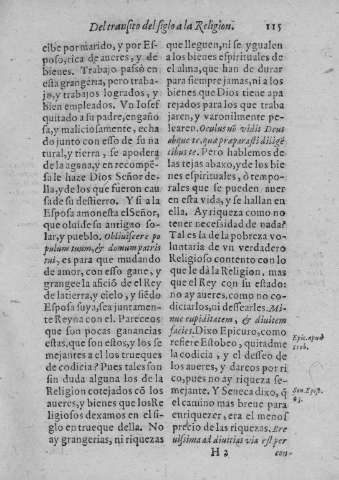 Del transito del siglo a la Religion. 115
cibe por marido, y por Es-
poso, rica de aueres, y de
bienes. Trabajo passò en
esta grangeria, pero traba-
jo, y trabajos logrados, y
bien empleados. Vn Iosef
quitado a su padre, engaño
sa, y maliciosamente, echa
do junto con esso de su na
tural, y tierra, se apodera
de la agena, y en recompē-
sa le haze Dios Señor de-
lla, y de los que fueron cau
sa de su destierro. Y si a la
Esposa amonesta el Señor,
que oluide su antiguo so-
lar, y pueblo. Obliuiscere po
pulum tuum, & domum patris
tui, es para que mudando
de amor, con esso gane, y
grangee la afició del Rey
de la tierra, y cielo, y siēdo
Esposa suya, sea juntamen-
te Reyna con el. Pareceos
que son pocas ganancias
estas, que son estos, y los se
mejantes a el los trueques
de codicia? Pues tales son
sin duda alguno los de la
Religion cotejados cō los
aueres, y bienes que los Re
ligiosos dexamos en el si-
glo en trueque della. No
ay grangerias, ni riquezas
que lleguen, ni se ygualen
a los bienes espirituales de
el alma, que han de durar
para siempre jamas, ni a los
bienes que Dios tiene apa
rejados para los que traba
jaren, y varonilmente pe-
learen. Oculus nō vidit Deus
absque te, quæ præparasti diligē
tibus te. Pero hablemos de
las tejas abaxo, y de los bie
nes espirituales, ò tempo-
rales que se pueden auer
en esta vida, y se hallan en
ella. Ay riqueza como no
tener necesidad de nada?
Tal es la de la pobreza vo-
luntaria de vn verdadero
Religioso contento con lo
que le dà la Religion, mas
que el Rey con su estado:
no ay aueres, como no co-
diciarlos, ni dessearles. Mi-
nue cupiditatem, & diuitem
facies. Dixo Epicuro, como
refiere Estobeo, quitadme
la codicia, y el desseo de
los aueres, y dareos por ri
co, pues no ay riqueza se-
mejante. Y Seneca dixo, q̃
el camino mas breue para
enriquezer, era el menos
precio de las riquezas. Bre
uissima ad diuitias via est per
Epic. apud
Stob.
Sen. Epist.
H 2 con-